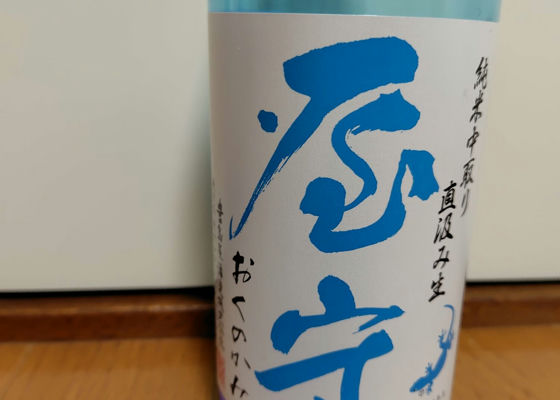 純米中取り
直汲み生
屋守
おくのかみ